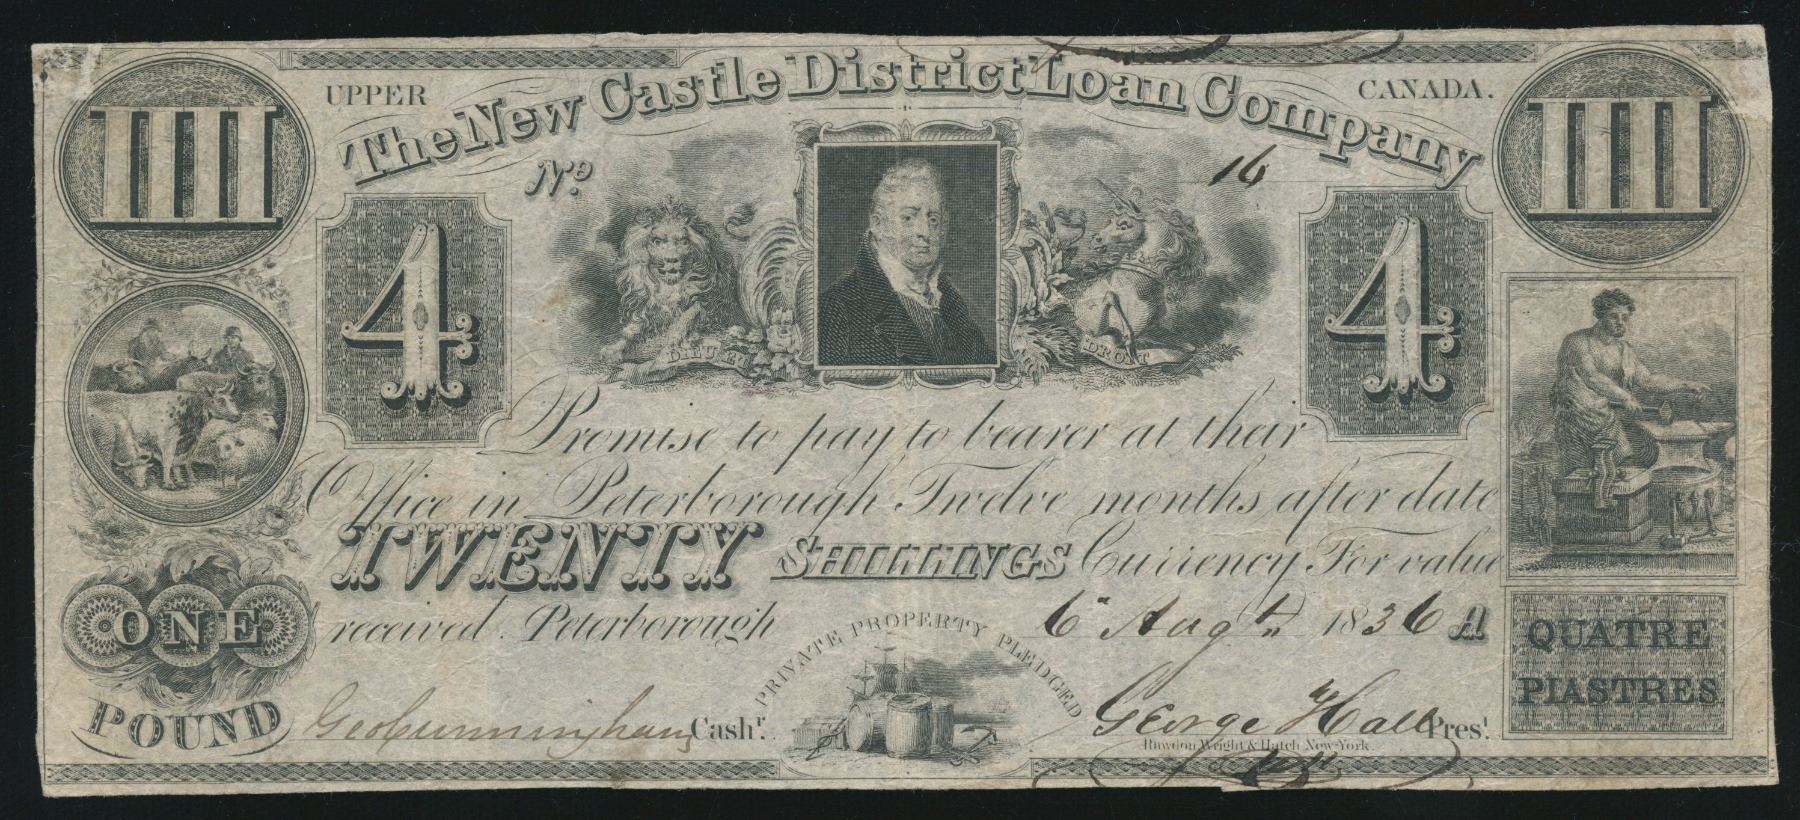 IIII
UPPER
The New Castle District Loan Company
CANADA.
IIII
No. 16
4
DIEU ET
DROIT
4
Promise to pay to bearer at their
Office in Peterborough Twelve months after date
TWENTY SHILLINGS Currency For value
received. Peterborough 6th Augt. 1836
ONE
POUND
PRIVATE PROPERTY PLEDGED
QUATRE
PIASTRES
Geo Cunningham Cashr.
George Hall Prest.
Rawdon Wright & Hatch New-York.